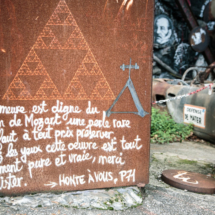 meure est digne du
n de Mozart une perle rare
faut à tout prix préserver
les yeux cette oeuvre est tout
ment pure et vraie, merci
ister.
→ HONTE À VOUS, P.71
DE MATER